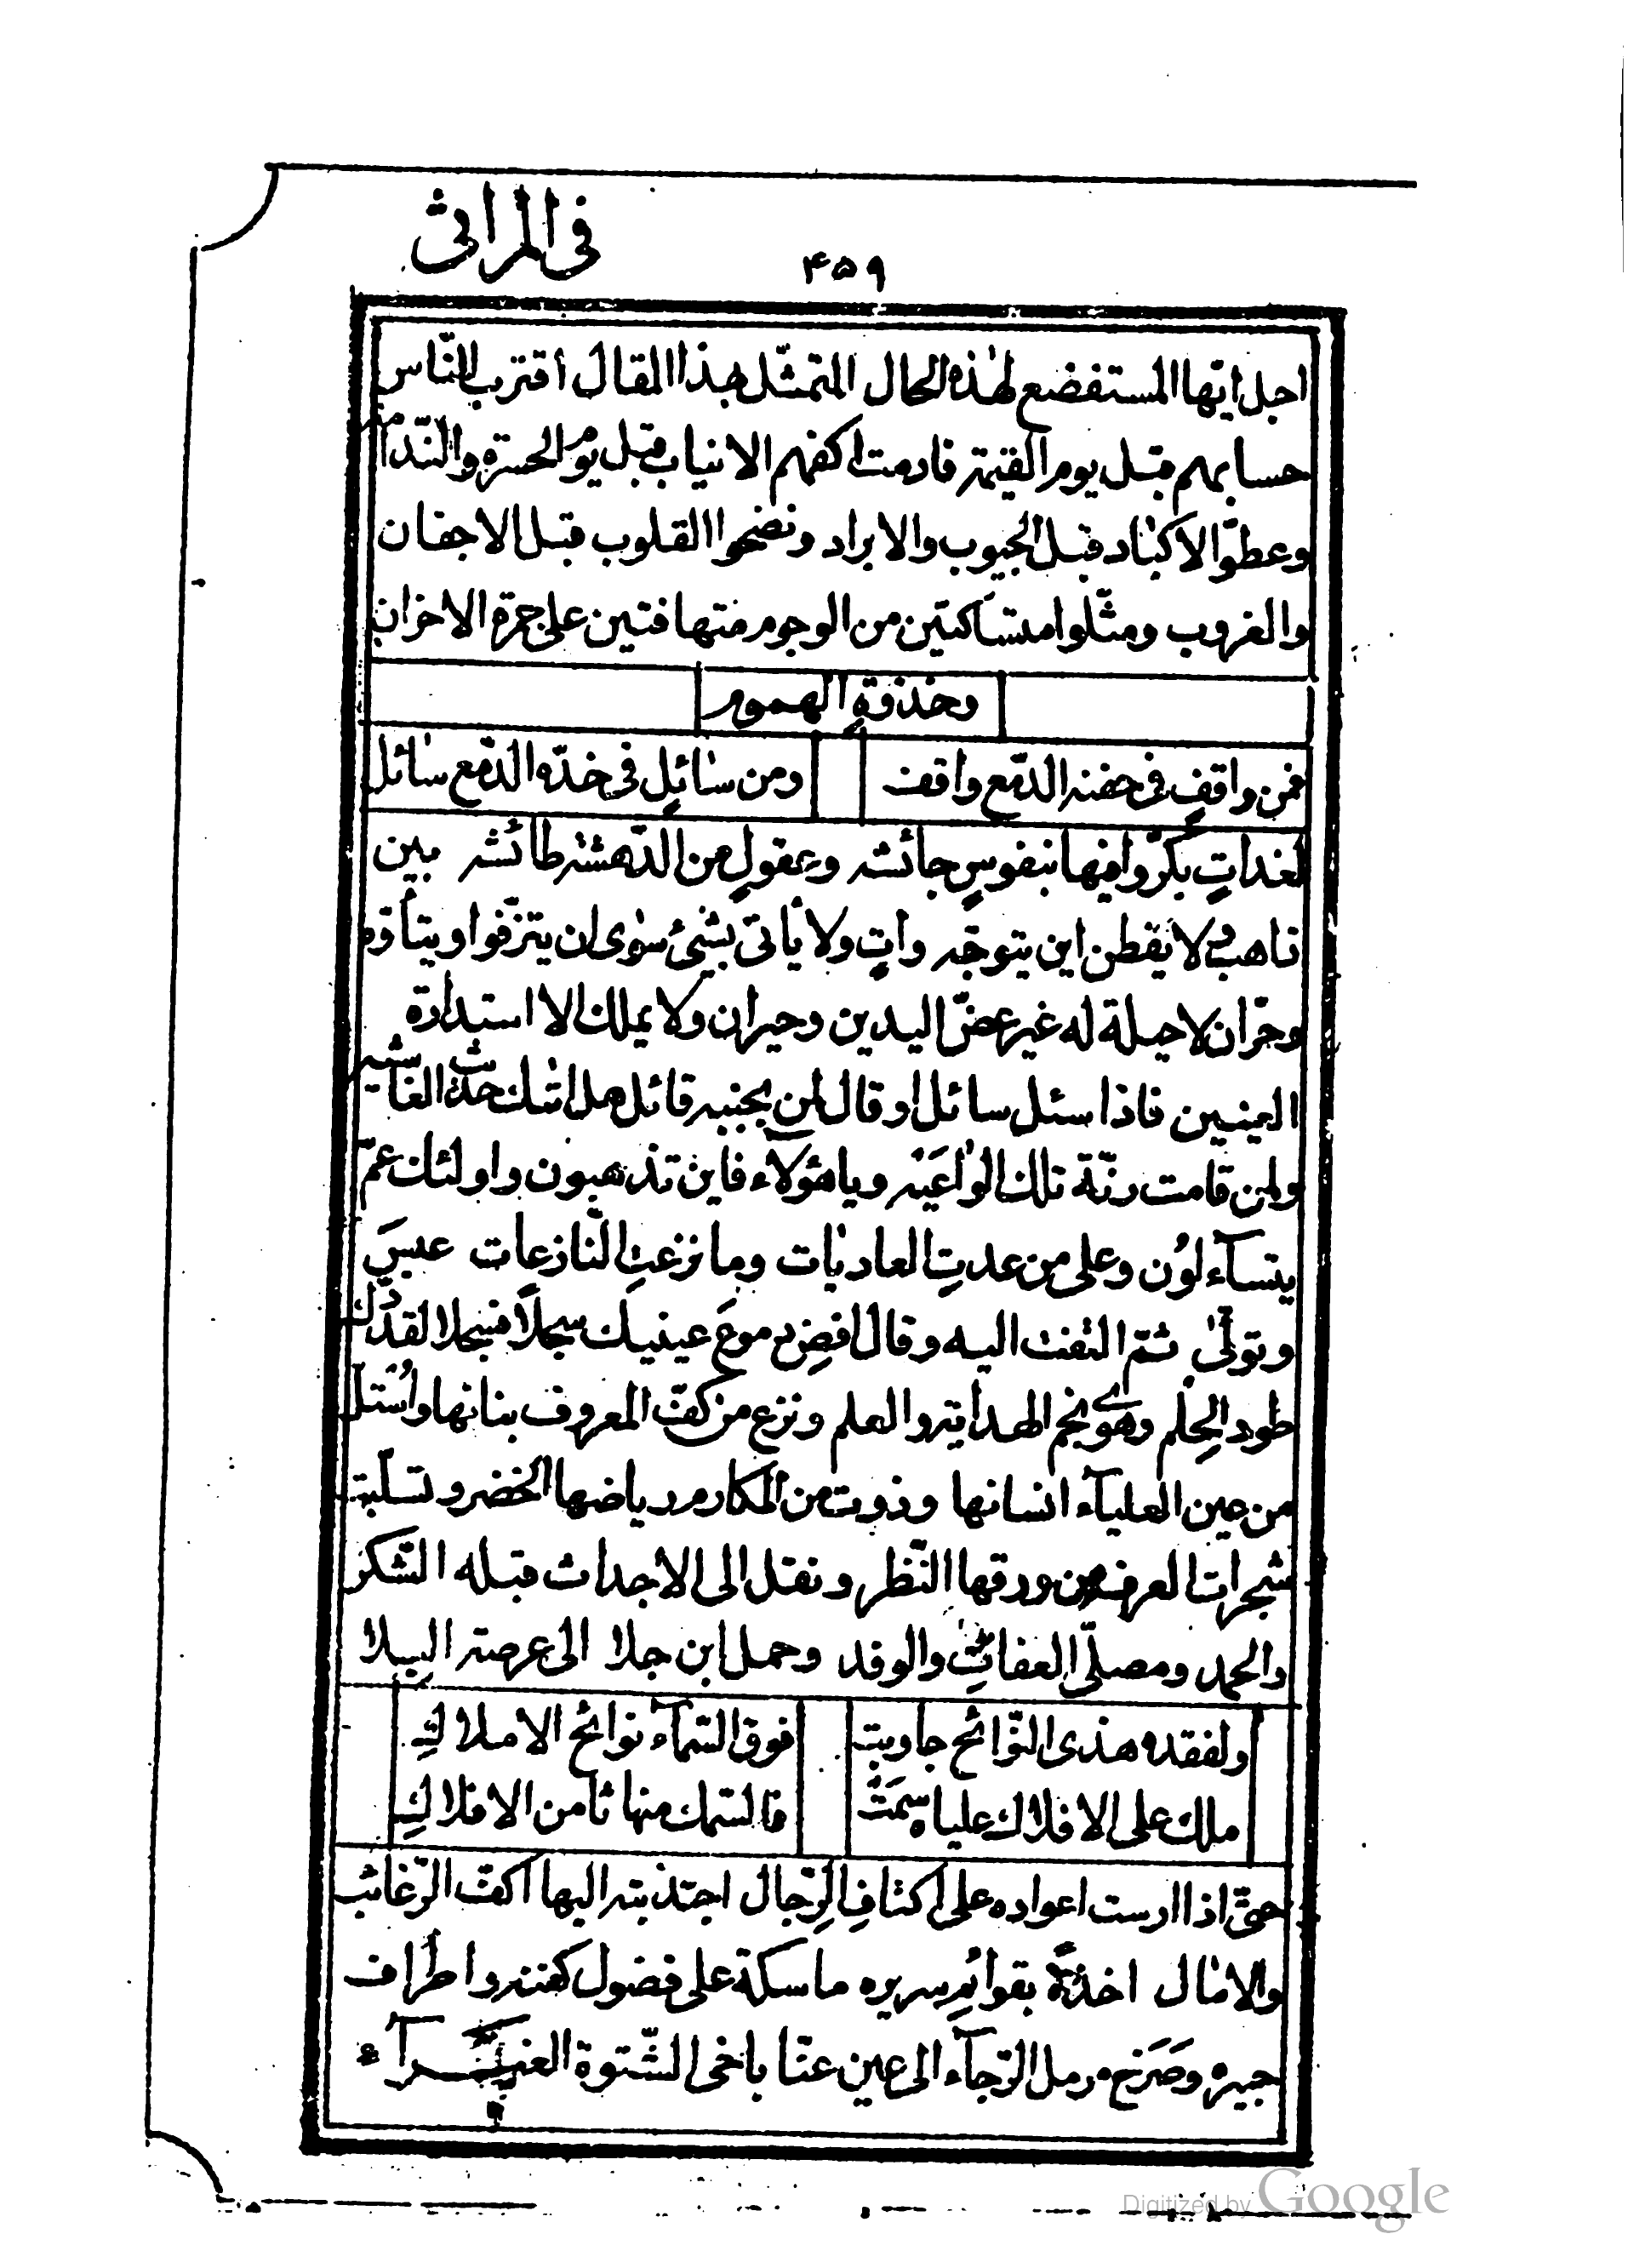 فی المراثی
۴۵۹
اجل ایّها المستفضع لهٰذه الحال المتمثّل بهذا المقال اقترب للنّاس
حسابهم قبل یوم القیٰمة فادمت اکفهم الانیاب قبل یوم الحسرة والنّدامة
وعطّوا الاکباد قبل الجیوب والابراد ونضحوا القلوب قبل الاجفان
والغروب ومثّلوا متساکتین من الوجوم متهافتین علی جمرة الاحزان
وخذقة الهموم
فمن واقفٍ فی جفنه الدّمع واقف
ومن سائلٍ فی خدّه الدّمع سائل
لغداتٍ بکّروا فیها بنفوسٍ جائشه وعقولٍ من الدّهشة طائشه بین
ذاهب لایفطن این یتوجّه واتٍ ولا یأتی بشیئ سوٰی ان یتزفّوا ویتأوّه
وحرّان لا حیلة له غیر عضّ الیدین وحیران ولا یملك الا استدارة
العینین فاذا سئل سائل او قال لمن بجنبه قائل هل اتٰك حدیث الغاشیه
ولمن قامت رنّة تلك الوٰاعیه ویا هؤلآء فاین تذهبون واولئك عمّ
یتسآءلون وعلی من عدتِ العادیٰات وما نزعتِ النّازعات عبسَ
وتولّی ثمّ التفت الیه وقال افض دموعَ عینیك سجلاً فسجلا لقد دُك
طود الحِلم وهوٰی نجم الهدایة والعلم ونزع من کفّ المعروف بنانها واستلّ
من عین العلیآء انسانها وذوت من المکارم ریاضها الخضر وتسلّبت
شجرات العرف من ورقها النّظر ونقل الی الاجداث قبله الشّکر
والحمد ومصلّی العفات والوفد وحمل ابن جلا الی عرصة البلا
ولفقده هذی النّوائح جاوبت
فوق السّمآء نوائح الاملاكِ
ملك علی الافلاك علیاه سمَتْ
فالسّمك منها ثامن الافلاكِ
حتّی اذا ارست اعواده علی اکتافِ الرّجال اجتذبته الیها اکفّ الرّغائب
والامٰال اخذةً بقوائمِ سریره ماسکة علی فضول کفنه واطراف
حبیره وصَرَخ مرمل الرّجآء الی عین عنّا یا خی الشّتوة الغبرآء
Digitized by Google